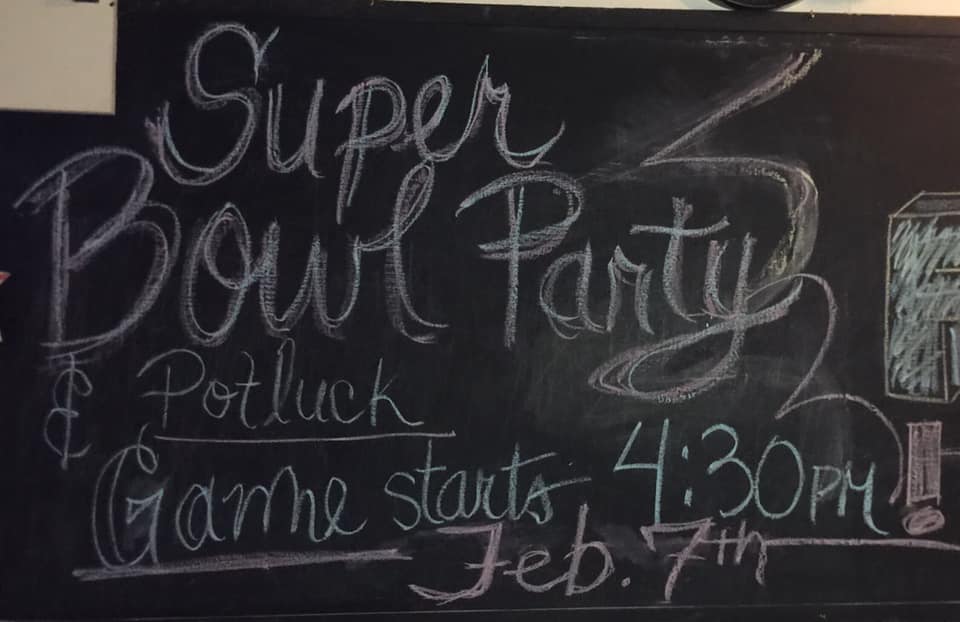 Super
Bowl Party
& Potluck
Game starts 4:30PM!
Feb. 7th